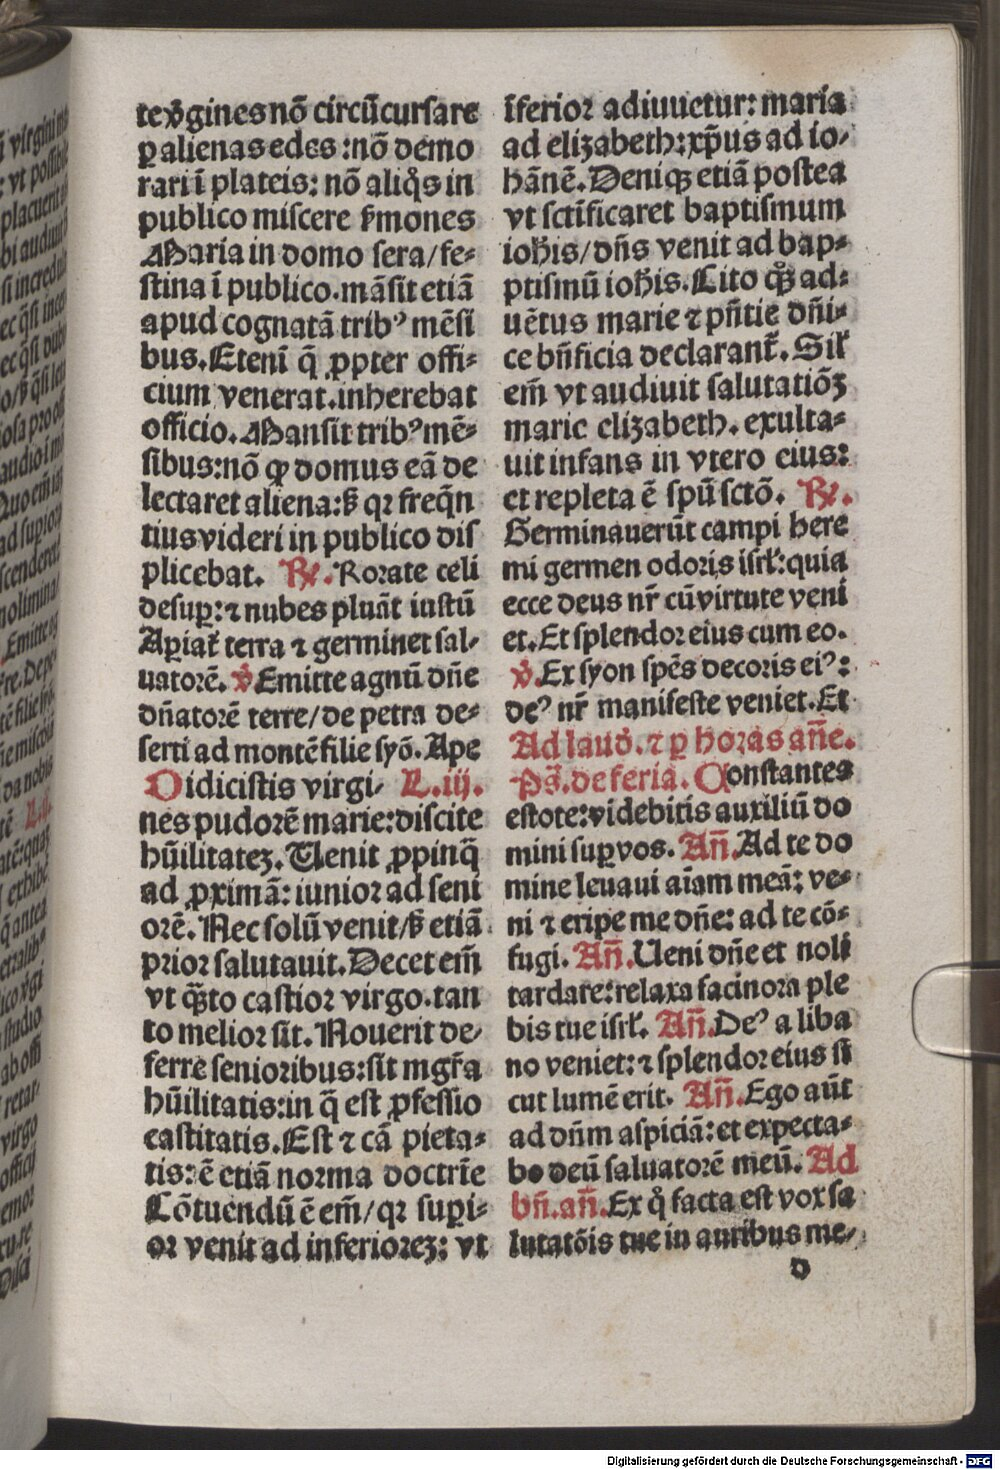 te v̄gines nō circūcursare
ꝑ alienas edes : nō demo
rari ī plateis: nō aliq̄s in
publico miscere ẜmones
Maria in domo sera/fe-
stina ī publico. māsit etiā
apud cognatā tribꝰ mēsi
bus. Etenī q̄ ꝓpter offi-
cium venerat. inherebat
officio. Mansit tribꝰ mē-
sibus: nō ꝙ domus eā de
lectaret aliena: ẜ qꝛ freq̄n
tius videri in publico dis
plicebat. ℞. Rorate celi
desuꝑ: ⁊ nubes pluāt iustū
Aꝑiat᷑ terra ⁊ germinet sal-
uatorē. ℣ Emitte agnū dn̄e
dn̄atorē terre/de petra de-
serti ad montē filie syō. Ape
Didicistis virgi- L.iij.
nes pudorē marie: discite
hūilitateꝫ. Uenit ꝓpinq̄
ad ꝓximā: iunior ad seni
orē. Nec solū venit/ẜ etiā
prior salutauit. Decet em̄
vt q̄ꝫto castior virgo. tan
to melior sit. Nouerit de-
ferre senioribus: sit mgr̄a
hūilitatis: in q̄ est ꝓfessio
castitatis. Est ⁊ cā pieta-
tis: ē etiā norma doctrīe
Cōtuendū ē em̄/qꝛ suꝑi-
or venit ad inferioreꝫ: vt
īferior adiuuetur: maria
ad elizabeth: xp̄us ad io-
hānē. Deniqꝫ etiā postea
vt sctīficaret baptismum
ioh̄is/dn̄s venit ad bap-
ptismū ioh̄is. Cito qꝫ ad-
uētus marie ⁊ pn̄tie dn̄i-
ce bn̄ficia declarant᷑. Sil᷑
em̄ vt audiuit salutatiōꝫ
marie elizabeth. exulta-
uit infans in vtero eius:
et repleta ē spū sctō. ℞.
Germinauerūt campi here
mi germen odoris isrl᷑: quia
ecce deus nr̄ cū virtute veni
et. Et splendor eius cum eo.
℣. Ex syon spēs decoris eiꝰ:
deꝰ nr̄ manifeste veniet. Et
Ad laud. ⁊ ꝑ horas an̄e.
Ps̄. de feria. Constantes
estote: videbitis auxiliū do
mini suꝑ vos. An̄. Ad te do
mine leuaui aīam meā: ve-
ni ⁊ eripe me dn̄e: ad te cō-
fugi. An̄. Ueni dn̄e et noli
tardare: relaxa facinora ple
bis tue isrl᷑. An̄. Deꝰ a liba
no veniet: ⁊ splendor eius si
cut lumē erit. An̄. Ego aūt
ad dn̄m aspiciā: et expecta-
bo deū saluatorē meū. Ad
bn̄. an̄. Ex q̊ facta est vox sa
lutatōis tue in auribus me-
d
Digitalisierung gefördert durch die Deutsche Forschungsgemeinschaft - DFG